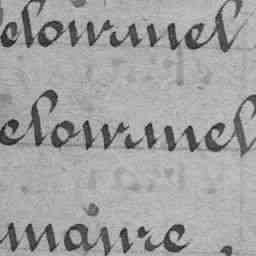 elournel
elournel
maire